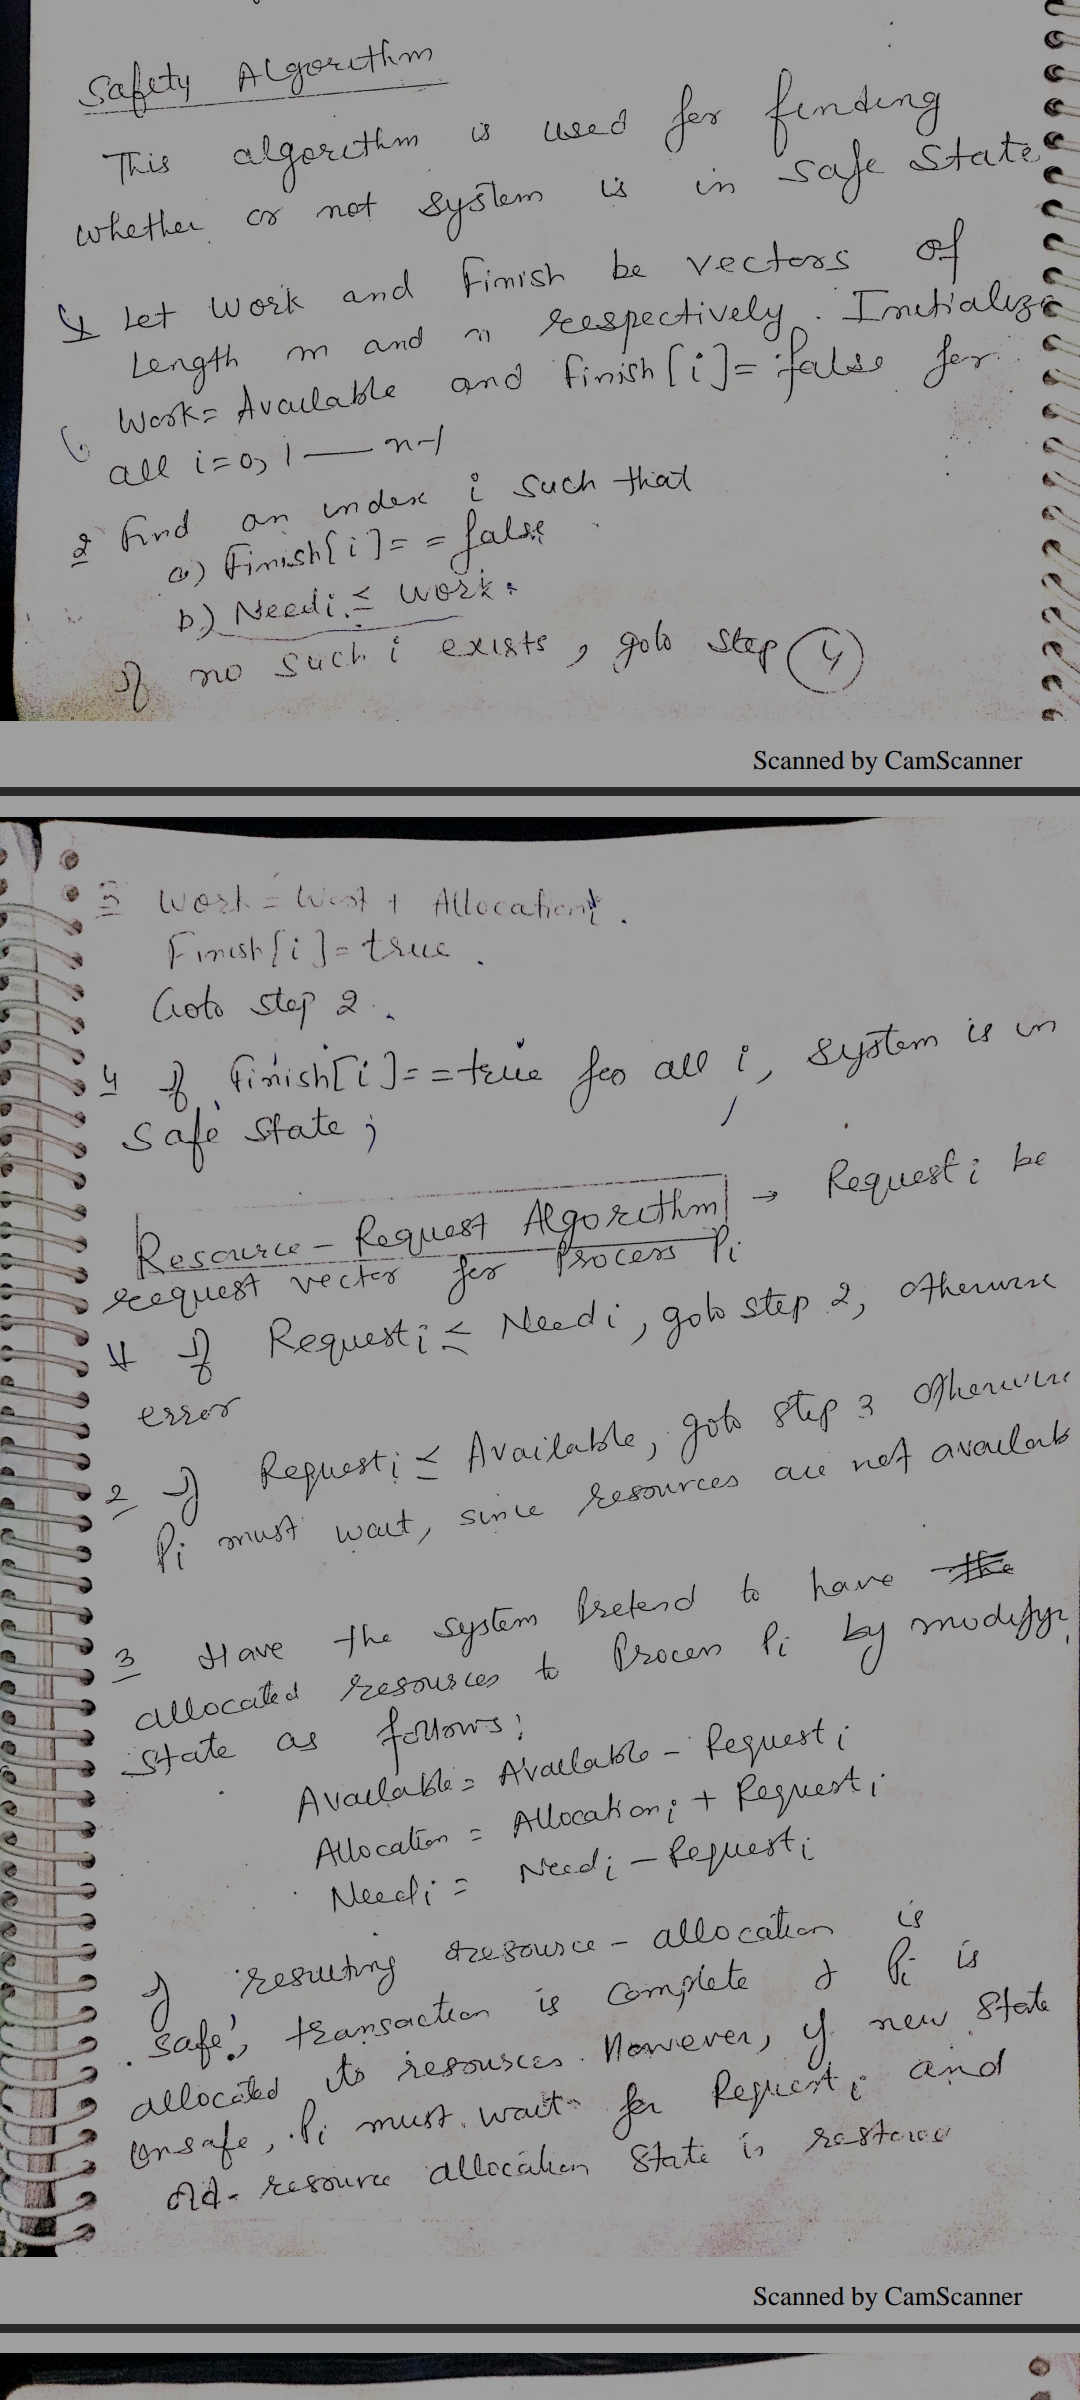 Safety Algorithm
This algorithm is used for finding
whether or not system is in safe state
1 Let Work and Finish be vectors of
Length m and n respectively. Initialize
Work= Available and finish[i]= false for
all i=0, 1 — n-1
2 Find an index i such that
a) Finish[i]= = false
b) Needi ≤ work.
If no such i exists, goto step 4
Scanned by CamScanner
3 Work = Work + Allocationi.
Finish[i]= true.
Goto step 2.
4 If Finish[i]= =true for all i, system is in
safe state;
Resource-Request Algorithm → Requesti be
request vector for Process Pi
1 If Requesti ≤ Needi, goto step 2, otherwise
error
2 If Requesti ≤ Available, goto step 3 otherwise
Pi must wait, since resources are not availab
3 Have the system Pretend to have the
allocated resources to Process Pi by modifyi
state as follows:
Available= Available - Requesti
Allocation = Allocationi + Requesti
Needi = Needi - Requesti
If resulting resource-allocation is
safe, transaction is complete & Pi is
allocated its resources. However, if new state
unsafe, Pi must wait for Requesti and
old-resource allocation state is restored
Scanned by CamScanner